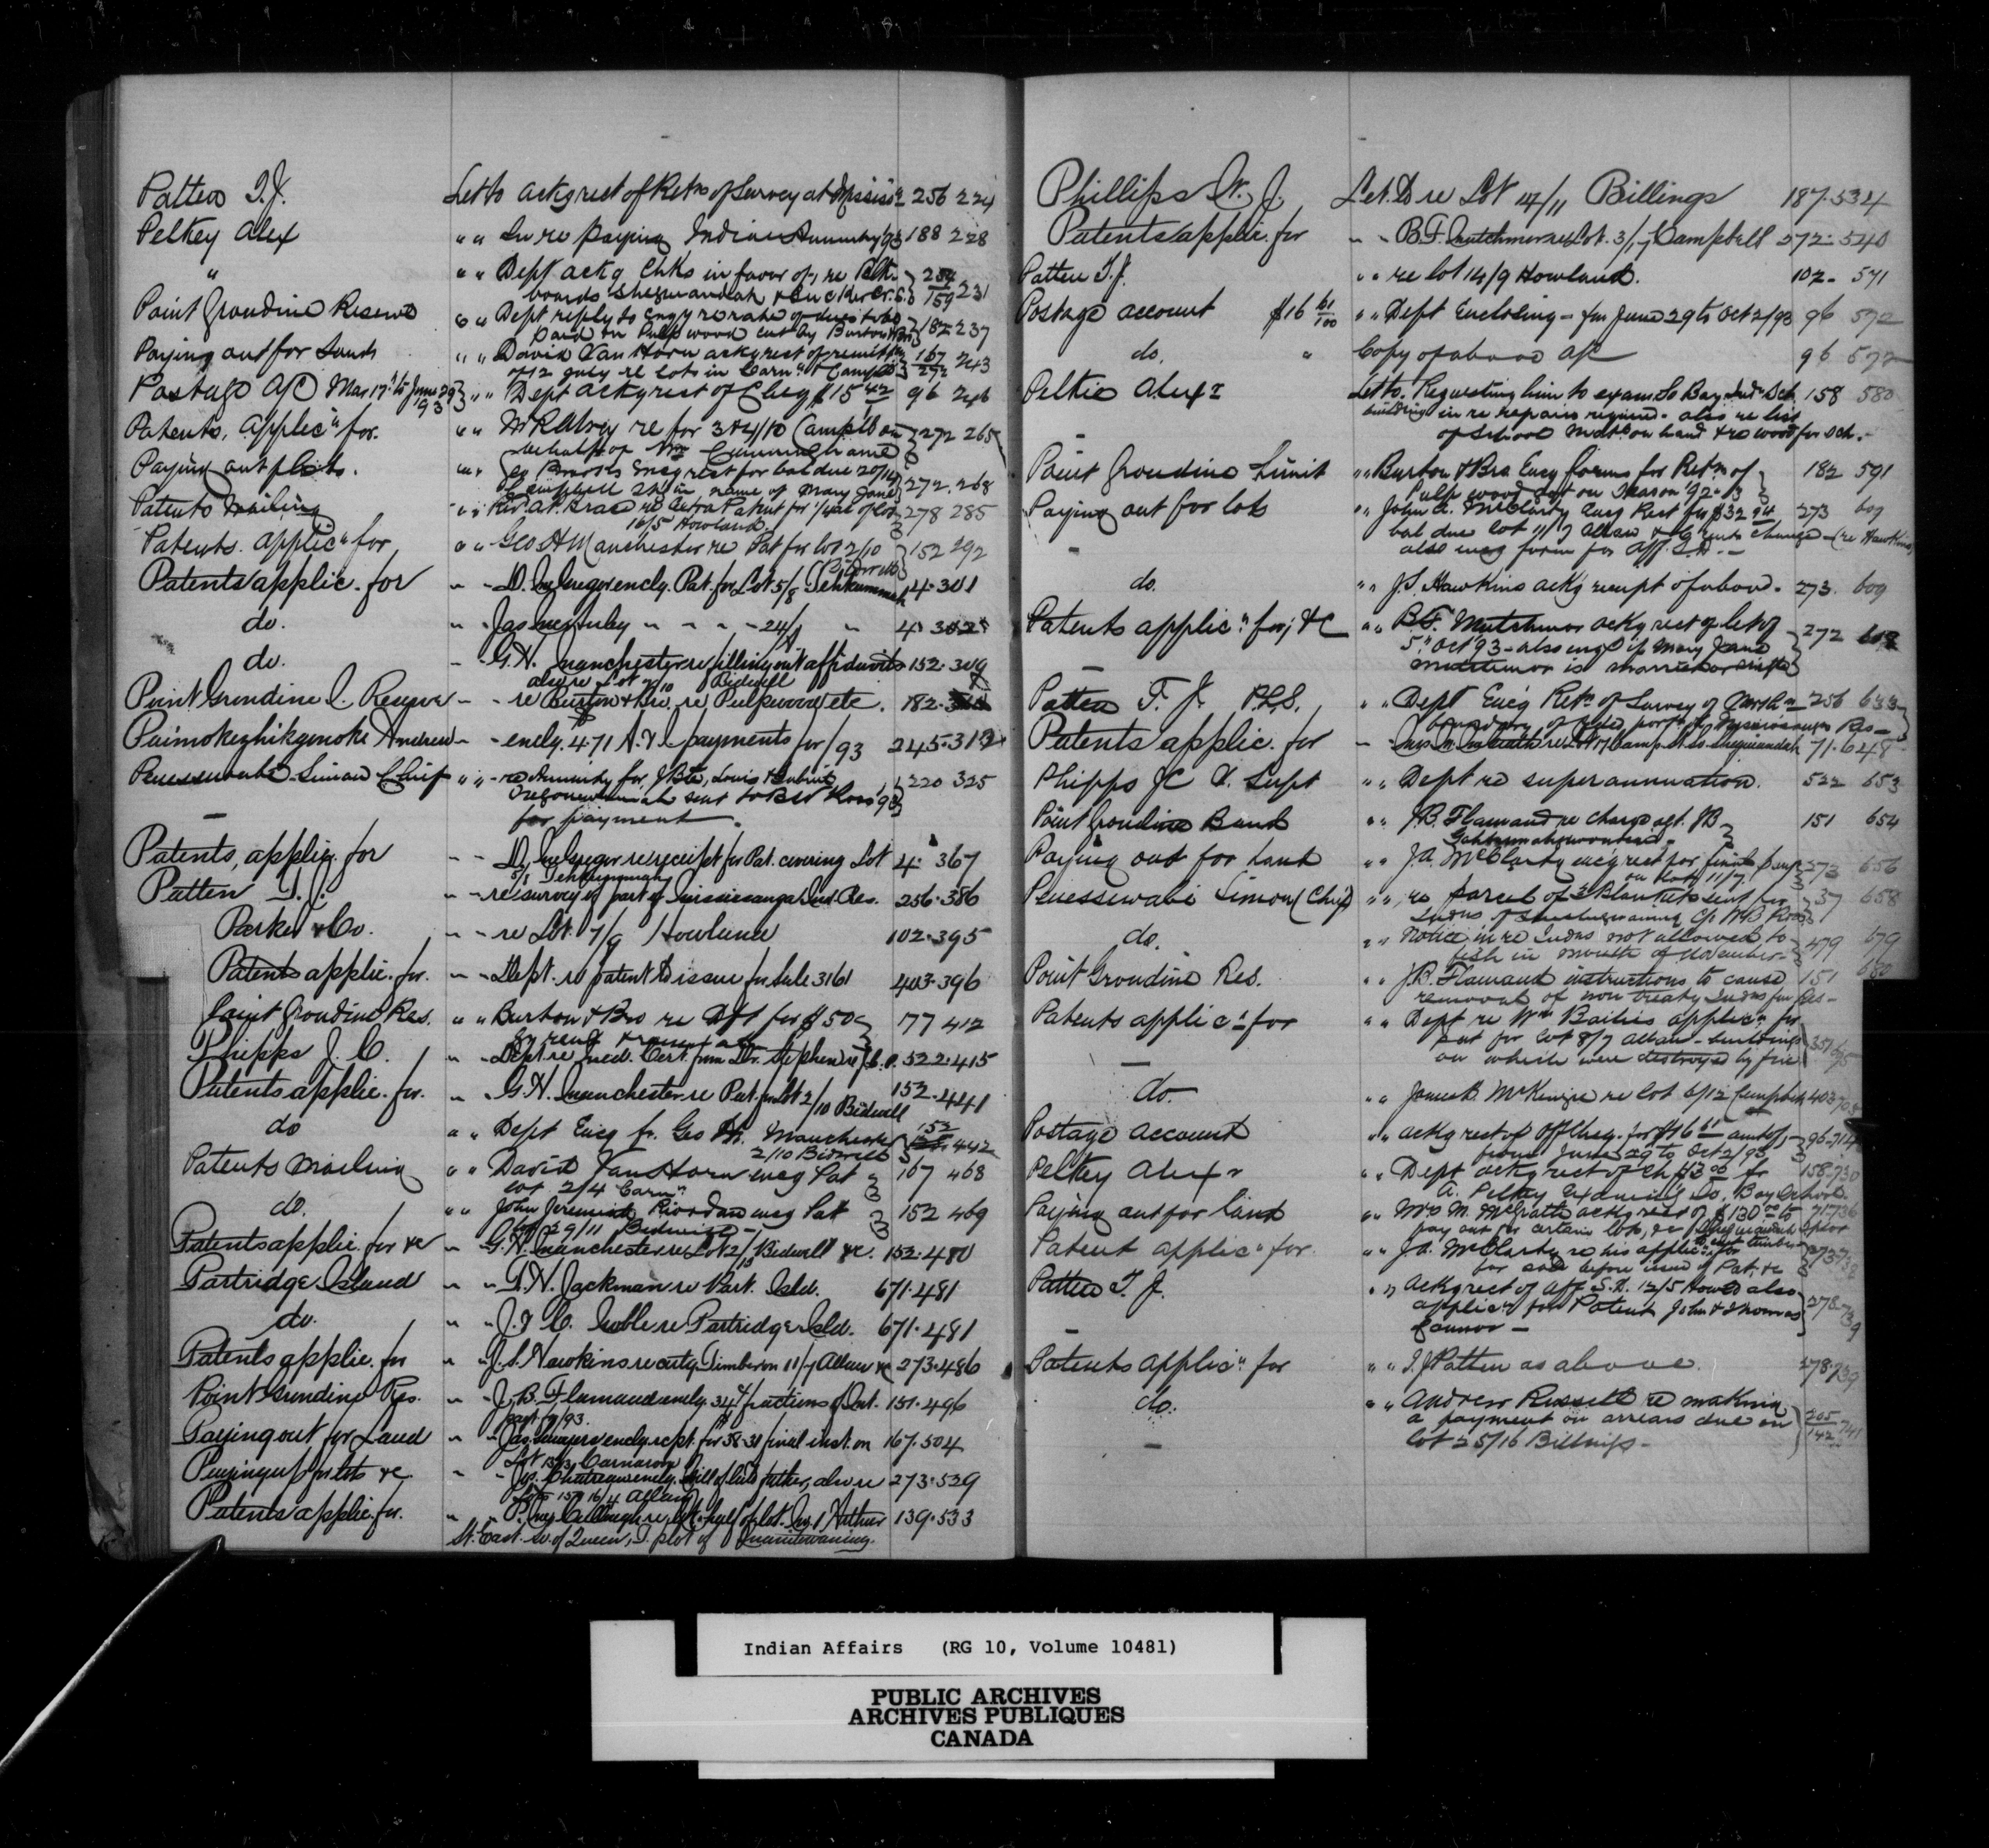 Patten T.J. Let to ackg rect of Retn of Survey at Mississa 256 224
Pelkey Alex " " In re paying Indian Annuity '93 188 228
" " " Dept ackg Chks in favor of, re Blk. 254 231
boards Sheguiandah & Sucker Cr. S. 159
Point Grondine Reserve " " Dept reply to Engy re rate of dues to be 182 237
paid on Pulp wood cut by Burton & Bro
Paying out for Lands " " David Van Horn ackg rect of remittce 167 243
of 12 July re lots in Carn. & Campbell 272
Postage A/C Mar 17 to June 29 '93 " " Dept ackg rest of Cheq $15 42 96 246
Patents, Applic" for. " " McKelvey re for 3 & 4/10 Campbell on 272 265
behalf of Mr Cunningham
Paying out plots. " " Geo Brooks encg rest for bal due 20/14
Campbell in name of Mary Jane 272. 268
Patents Mailing " " Rev. re Patent for of lot 278 285
16/5 Howland
Patents. Applic" for " " Geo H Manchester re Pat for lot 2/10 152 292
Bidwell
Patents applic. for " - D. McGregor encly. Pat. for Lot 5/8 Tehkummah 4. 301
do. " - Jas " - - - 24/1 " 4. 302
do. - G.H. Manchester re filling out affidavits 152. 309
also re Lot 2/10 Bidwell
Point Grondine I. Reserve - - re Burton & Bro. re Pulpwood etc. 182.
Paimokezhikgenoke Andrew - - encly. 471 A. & I. payments for /93 245. 313
Penessewabe Simon Chief " " - re Annuity for J Bte, Louis & 220 325
sent to B.W Ross '93
for payment.
Patents, applic. for - - D. McGregor re receipt for Pat. covering Lot 4. 367
5/1 Tehkummah
Patten T. J. - - re survey of part of Mississauga Ind. Res. 256. 386
Parker & Co. - - re Lot. 7/9 Howland 102. 395
Patents applic. for. - - Dept. re patent to issue for Sale 3161 403. 396
Point Grondine Res. " " Burton & Bro re Dft for $50 77 412
Gr rent &
Phipps J. C. " - Dept re Med. Cert. from Dr. Stephen re J.C.P. 522. 415
Patents applic. for. " - G.H. Manchester re Pat. for Lot 2/10 Bidwell 152. 441
do " " Dept Encg fr. Geo H. Manchester 152 442
2/10 Bidwell
Patents Mailing " " David Van Horn encg Pat 167 468
lot 2/4 Carn"
do. " " John Jeremiah Riordan encg Pat 152 469
lot 29/11 Bidwell -
Patents applic. for &c " - G.H. Manchester re Lot 2/10 Bidwell &c. 152. 480
Partridge Island " - T.H. Jackman re Part. Isld. 671. 481
do. " - J. & C. Noble re Partridge Isld. 671. 481
Patents applic. for " - J.S. Hawkins re cutg. Timber on 11/7 Allan &c 273. 486
Point Grondine Res. " - J.B. Flamand encly. 34 fractions of Int. 151. 496
part of /93.
Paying out for Land " - Jas. Sawyers encly. rcpt. for 38.31 final inst. on 167. 504
Lot 13/3 Carnarvon
Paying up for lots &c. " - Jos. encly. Will of late father, also re 273. 529
Lots 15 & 16/4 Allan
Patents applic. for. " - P. McCullough re W. half of lot No. 1 Arthur 139. 533
St. East. W. of Queen, T. plot of Manitowaning.
Phillips W. J. Let. D re Lot 14/11 Billings 187. 534
Patents applic. for - - B.F. Mutchmor re Lot. 3/ Campbell 272. 540
Patten T.J. " " re lot 14/9 Howland. 102. 571
Postage account $16 61/100 " " Dept Enclosing - for June 29 to Oct 2/93 96 572
do. " Copy of above A/C 96 572
Peltie Alexr Let to. Requesting him to exam. So Bay Indn Sch 158 580
building in re repairs required. also re list
of School Matl on hand & re wood for Sch. -
Point Grondine Limit " " Burton & Bro Encg forms for Retn of 182 591
Pulp wood cut on Season '92-'3
Paying out for lots " " John A. McClarty encg Rect for $32 94 273 609
bal due lot 11/7 Allan & change - (re Hawkins)
also encg form for Aff. S.D. -
do. " " J.S. Hawkins ackg receipt of above. 273. 609
Patents applic" for; &c " " B.F. Mutchmor ackg rect of let of 272
5" Oct 93 - also encg if Mary Jane
Mutchmor is married or single
Patten T. J. P.L.S. " " Dept Encg Retn of Survey of Northn 256 633
boundary of portn of Mississauga Res -
Patents applic. for - - Mrs M. McGrath re Lot 7 Camp St. So. Sheguiandah 71. 648
Phipps J C V. Supt " " Dept re superannuation. 522 653
Point Grondine Band " " J.B. Flamand re charge agt. JB 151 654
Paying out for Land " " J.A. McClarty encg rect for final paymt 273 656
on lot 11/7.
Penessewabe Simon (Chief) " " re parcel of 2 Blankets sent for 37 658
Indns of Sheshegwaning C/o WB Ross
do. " " Notice in re Indns not allowed to 479 679
fish in month of November -
Point Grondine Res. " " J.B. Flamand instructions to cause 151 680
removal of non treaty Indns fm Res -
Patents applic" for " " Dept re Wm Bailie's applic" for
pat for lot 8/7 Allan - buildings 357
on which were destroyed by fire
do - " " James B. McKenzie re lot 6/12 Campbell 403
Postage account " " ackg rect of off cheq. for $16 61 amt of, - 96. 714
from June 29 to Oct 2/93
Pelkey Alexr " " Dept ackg rect of Ch $3 00 fr 158. 730
A. Pelkey Examing So. Bay School.
Paying out for land " " Mrs M. McGrath ackg rect of $130 00 to 71 736
pay out for certain lots, &c Sheguiandah
Patent applic" for. " " J.A. McClarty re his applic" for timber 273.
for sale before issue of Pat. &c
Patten T. J. " " Ackg rect of Aff S.D. 12/5 Howd also
applic" for Patent John & Thomas 278. 739
Connor -
Patents applic" for " " T.J Patten as above. 278. 739
do. " " Andrew Russell re making
a payment on arrears due on 205/142 741
lot 25/16 Billings -
Indian Affairs (RG 10, Volume 10481)
PUBLIC ARCHIVES
ARCHIVES PUBLIQUES
CANADA